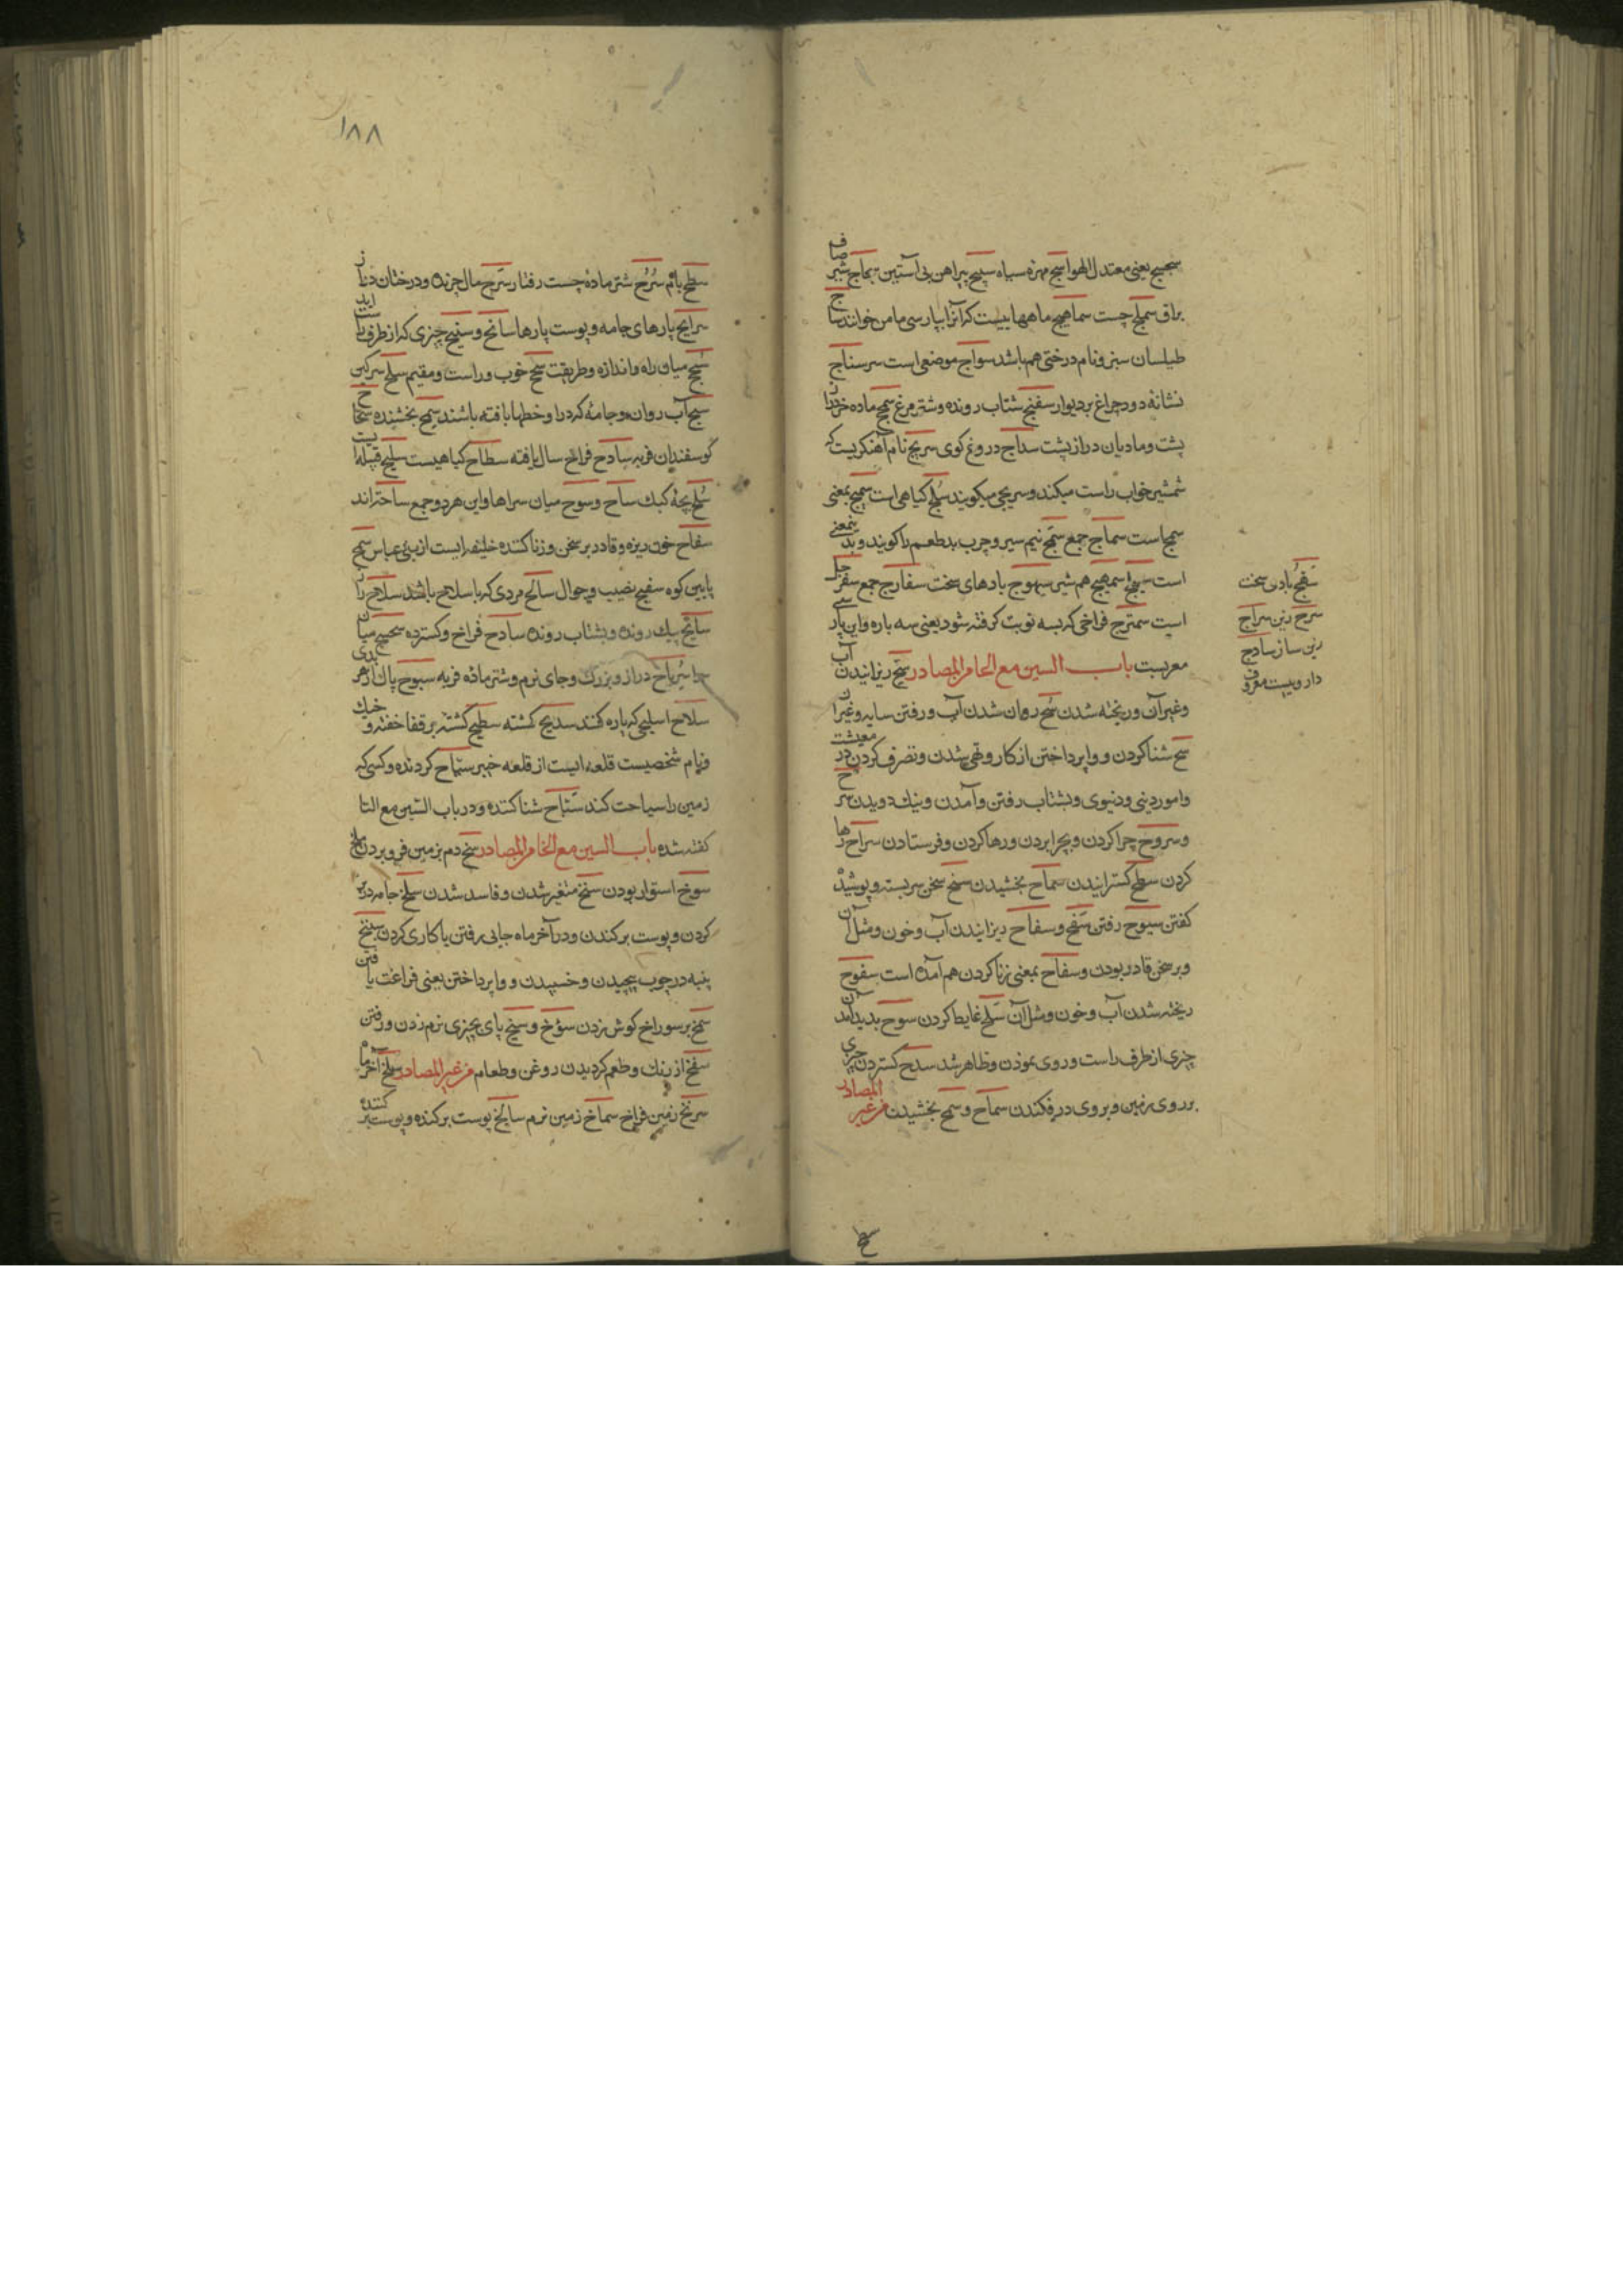 سجیج یعنی معتدل الهوا سبج مهره سیاه سبیج پیراهن بی آستین سماج شیر
صاف
براق سملج چست سماهیج ماههاییست که آنرا بپارسی مامن خوانند سا
ج
طیلسان سبز و نام درختی هم باشد سواج موضعی است سر سناج
نشانه دود چراغ بر دیوار سفنج شتاب رونده و شتر مرغ سمحج ماده خر دراز
پشت و مادیان دراز پشت سداج دروغ کوی سریج نام آهنکریست که
شمشیر خواب راست میکند و سریجی میکویند سلج کیاهی است سمیج بمعنی
سمج است سماج جمع سمج نیم سیر و چرب بد طعم را کویند و بد
بمعنی
است سمهج سمهیج هم شیر سیهوج بادهای سخت سفارج جمع سفر
جل
است سمترج فراخی که بسه نوبت کرفته شود یعنی سه باره و این پار
سی
معربست باب السین مع الحا من المصادر سح ریزانیدن
آب
و غیر آن و ریخته شدن سیح روان شدن آب و رفتن سایه و غیر آن
سبح شنا کردن و واپرداختن از کار و تهی شدن و تصرف کردن در
معیشت
و امور دینی و دنیوی و بشتاب رفتن و آمدن و نیک دویدن سر
ح
و سروح چرا کردن و بچرا بردن و رها کردن و فرستادن سراح رها
کردن سطح کسترانیدن سماح بخشیدن سنح سخن سر بسته و پوشیده
کفتن سیوح رفتن سفح و سفاح ریزانیدن آب و خون و مثل آن
و بر سخن قادر بودن و سفاح بمعنی زنا کردن هم آمده است سفوح
ریخته شدن آب و خون و مثل آن سلح غایط کردن سنوح بدید آمدن
چیزی از طرف راست و روی نمودن و ظاهر شدن سدح کستردن چیزی
بر روی زمین و بروی درفکندن سماح و سمح بخشیدن من غیر
المصادر
سفنج بادی سخت
سرج زین سراج
زین ساز ساذج
دارویست معروف
سطح
۱۸۸
سطح بام سرح شتر ماده چست رفتار سرح مال چرنده و درختان دراز
سرایح پارهای جامه و پوست پارها سانح و سنیح چیزی که از طرف راست
آید
سجح میان راه و اندازه و طریقت سجح خوب و راست و مقیم سلح سرکین
سیح آب روان و جامه که درا و خطها بافته باشند سمح بخشنده سحا
ح
کوسفندان فربه سادح فراخ سال یافته سطاح کیاهیست سلیح قبیله
ایست
سلح بچه کبک ساح و سوح میان سراها و این هر دو جمع ساحت اند
سفاح خون ریزه و قادر بر سخن و زنا کننده خلیفه ایست از بنی عباس سفح
پایین کوه سفیح نصیب و جوال سالح مردی که با سلاح باشد سلاح
سایح پیک رونده و بشتاب رونده سادح فراخ و کسترده سحسح میان
سرا سریاح دراز و بزرک و جای نرم و شتر ماده فربه سبوح پاک از هر
بدی
سلاح اسلیحی که پاره کنند سدیح کشته سطیح کشته بر قفا خفته و
خیک
و نام شخصیست قلعه ایست از قلعه خیبر سیاح کردنده و کسی که
زمین را سیاحت کند سباح شنا کننده و در باب السین مع التا
کفته شده باب السین مع الخا من المصادر سخ دم بزمین فرو بردن ملخ
سوخ استوار بودن سنخ متغیر شدن و فاسد شدن سلخ جامه در بر
کردن و پوست برکندن و در آخر ماه جایی رفتن یا کاری کردن سبخ
پنبه در چوب پیچیدن و خسپیدن و واپرداختن یعنی فراغت یا
فتن
سمخ بر سوراخ کوش زدن سوخ و سیخ پای بچیزی نرم زدن و رفتن
سنخ از رنک و طعم کردیدن روغن و طعام من غیر المصادر سلخ آخر ماه
سربخ زمین فراخ سماخ زمین نرم سالخ پوست برکنده و پوست بر
کننده